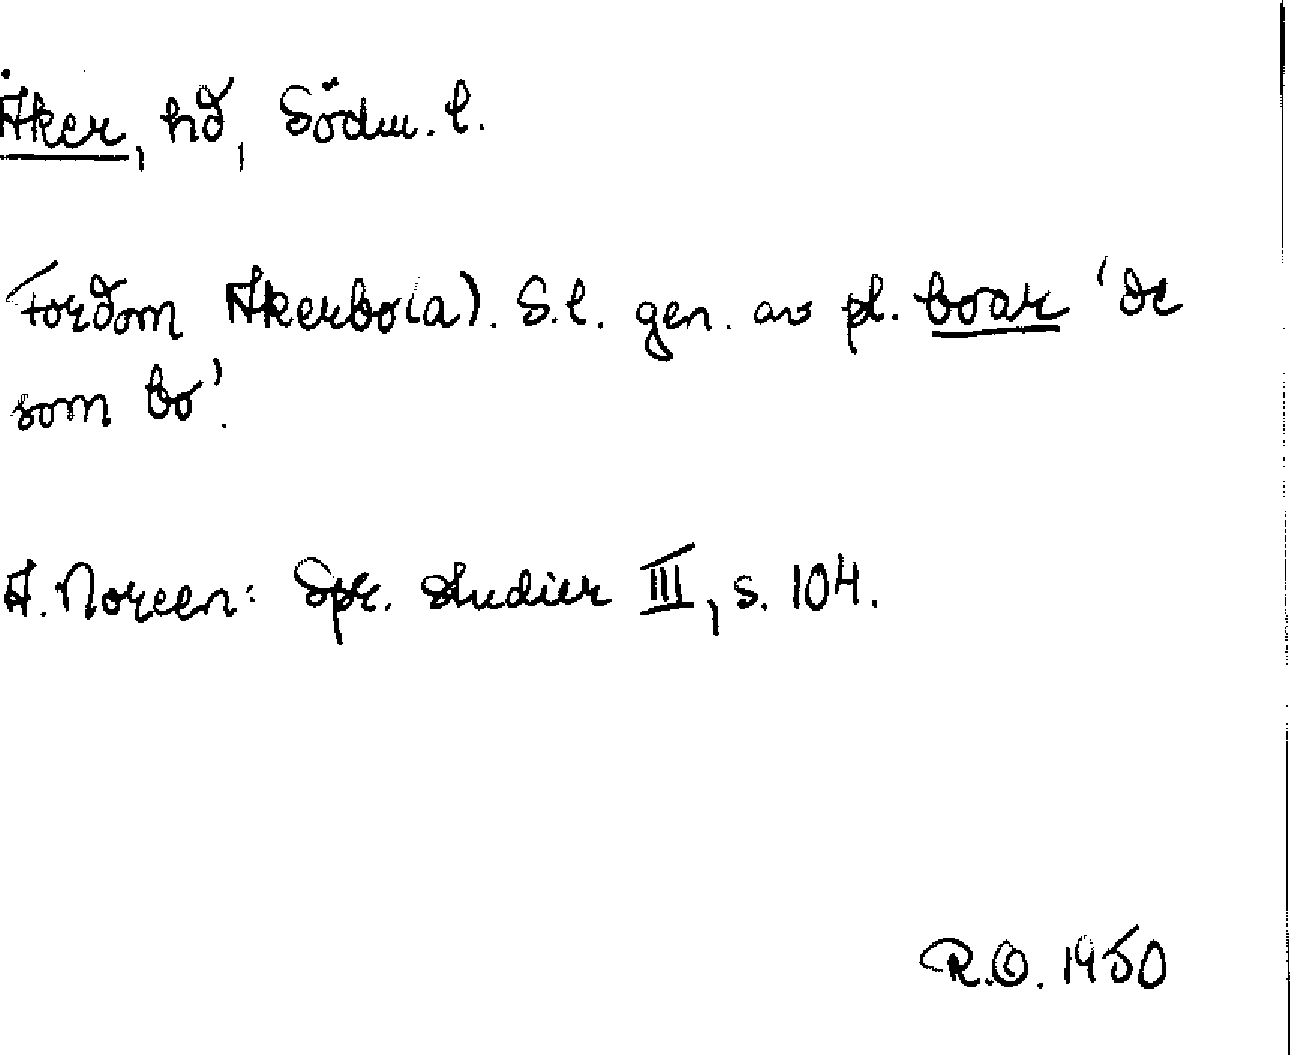 Åker, hd, Södm. l.
Fordom Akerbo(a). S.l. gen. av pl. boar 'de
som bo'.
A. Noreen: Spr. studier III, s. 104.
R.O. 1950